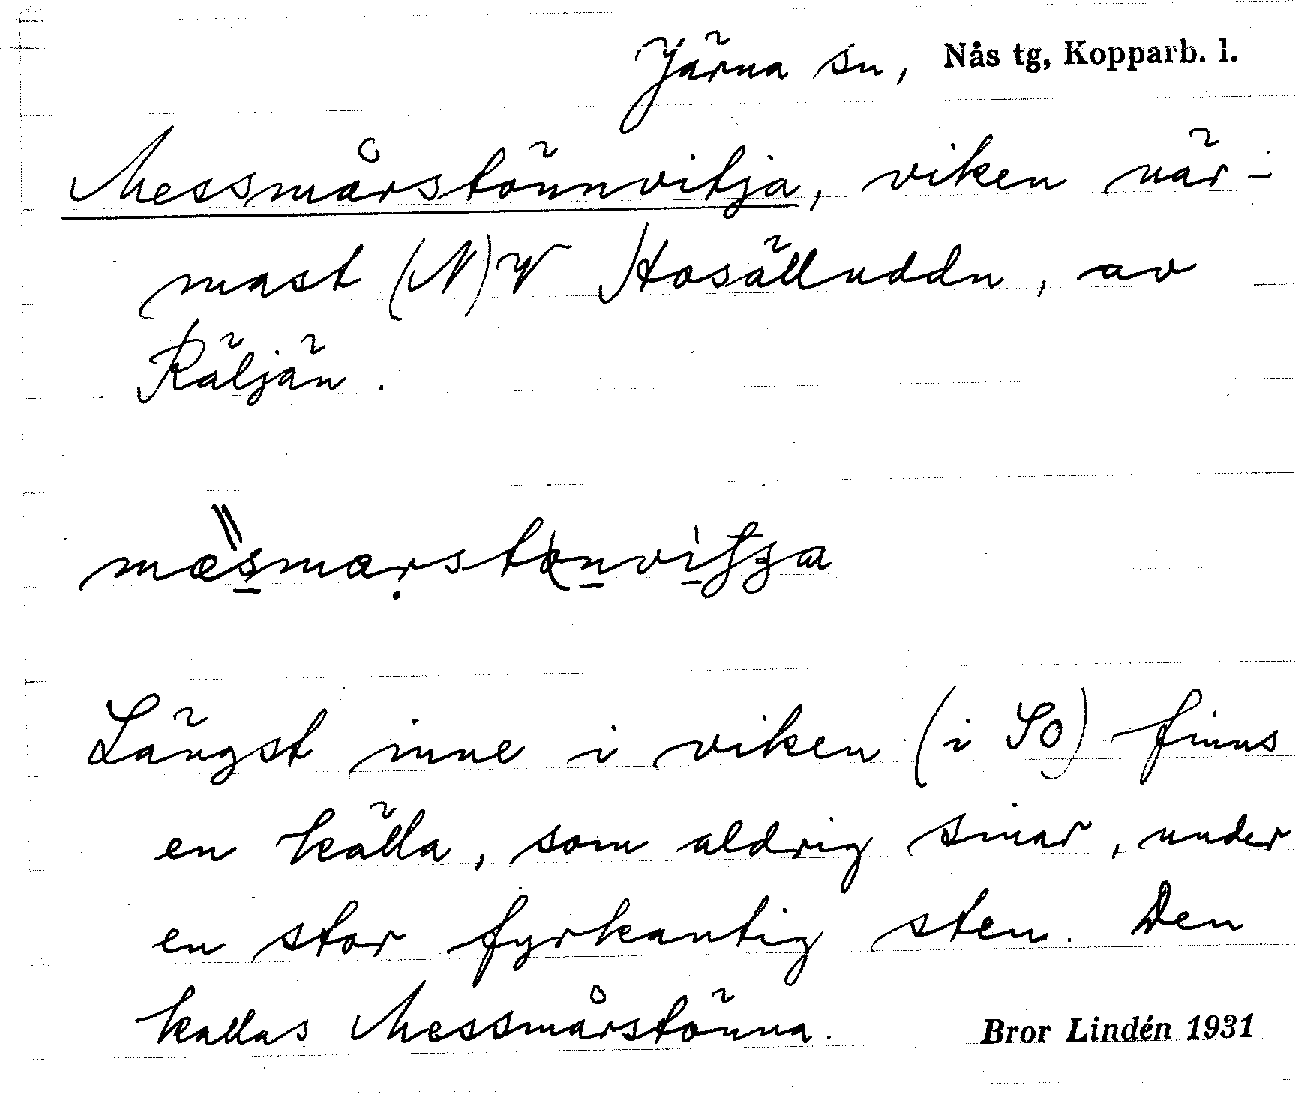 Järna sn, Nås tg, Kopparb. l.
Messmårstönnvitja, viken när-
mast (N)V Hosälluddn, av
Räljän.
Längst inne i viken (i SO) finns
en källa, som aldrig sinar, under
en stor fyrkantig sten. Den
kallas Messmårstönna.
Bror Lindén 1931